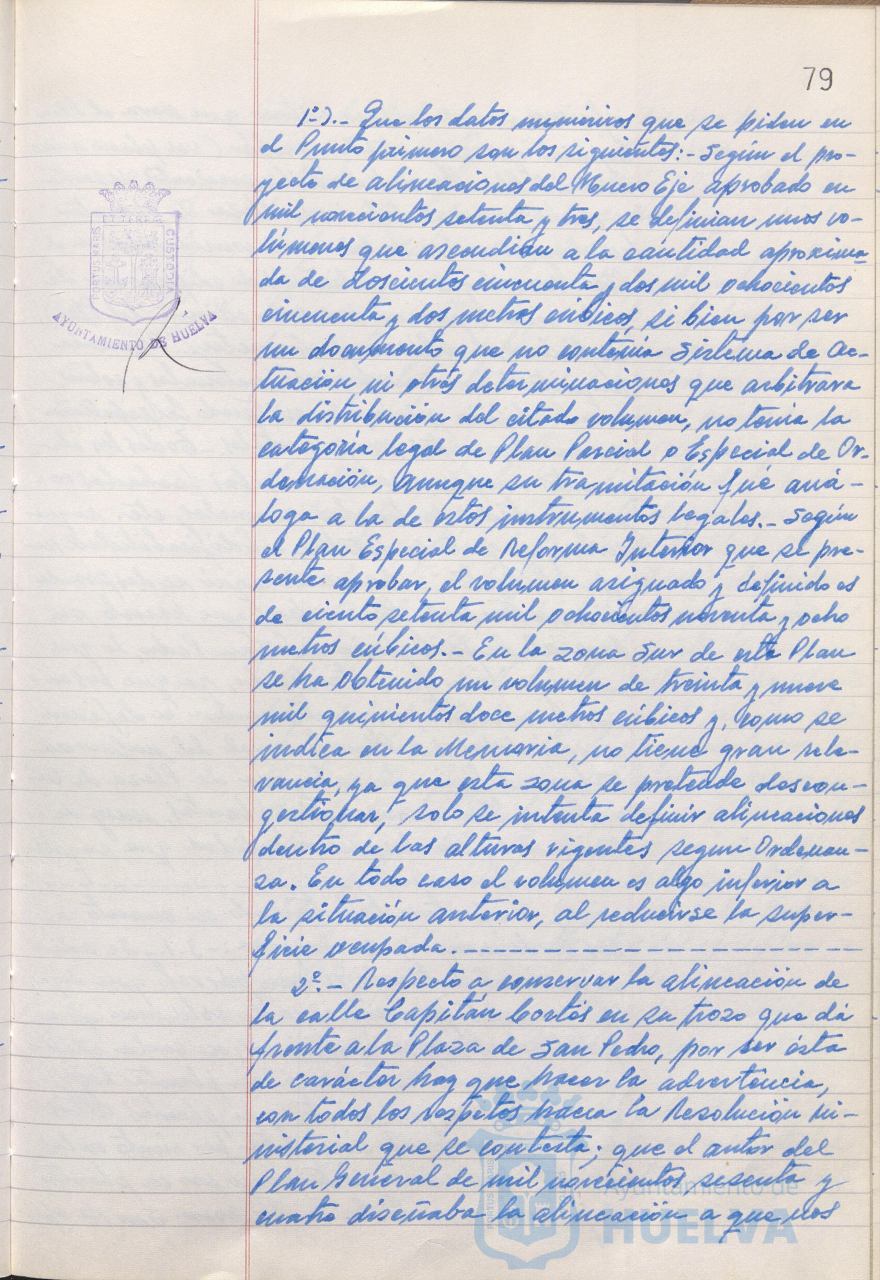 79
1º).- Que los datos numéricos que se piden en
el Punto primero son los siguientes:- Según el pro-
yecto de alineaciones del Nuevo Eje aprobado en
mil novecientos setenta y tres, se definian unos vo-
lúmenes que ascendian a la cantidad aproxima-
da de doscientos cincuenta y dos mil ochocientos
cincuenta y dos metros cúbicos, si bien por ser
un documento que no contenia Sistema de Ac-
tuación ni otras determinaciones que arbitrara
la distribución del citado volumen, no tenia la
categoría legal de Plan Parcial o Especial de Or-
denación, aunque su tramitación fué aná-
loga a la de estos instrumentos legales.- Según
el Plan Especial de Reforma Interior que se pre-
sente aprobar, el volumen asignado y definido es
de ciento setenta mil ochocientos noventa y ocho
metros cúbicos.- En la zona Sur de este Plan
se ha obtenido un volumen de treinta y nueve
mil quinientos doce metros cúbicos y, como se
indica en la Memoria, no tiene gran rele-
vancia, ya que esta zona se pretende descon-
gestionar, solo se intenta definir alineaciones
dentro de las alturas vigentes segun Ordenan-
za. En todo caso el volumen es algo inferior a
la situación anterior, al reducirse la super-
ficie ocupada.
2º.- Respecto a conservar la alineación de
la calle Capitán Cortés en su trozo que dá
frente a la Plaza de San Pedro, por ser ésta
de carácter hay que hacer la advertencia,
con todos los respetos hacia la Resolución Mi-
nisterial que se contesta; que el autor del
Plan General de mil novecientos sesenta y
cuatro diseñaba la alineación a que nos
PORTUS MARIS ET TERRE CUSTODIA
AYUNTAMIENTO DE HUELVA
Ayuntamiento de
HUELVA